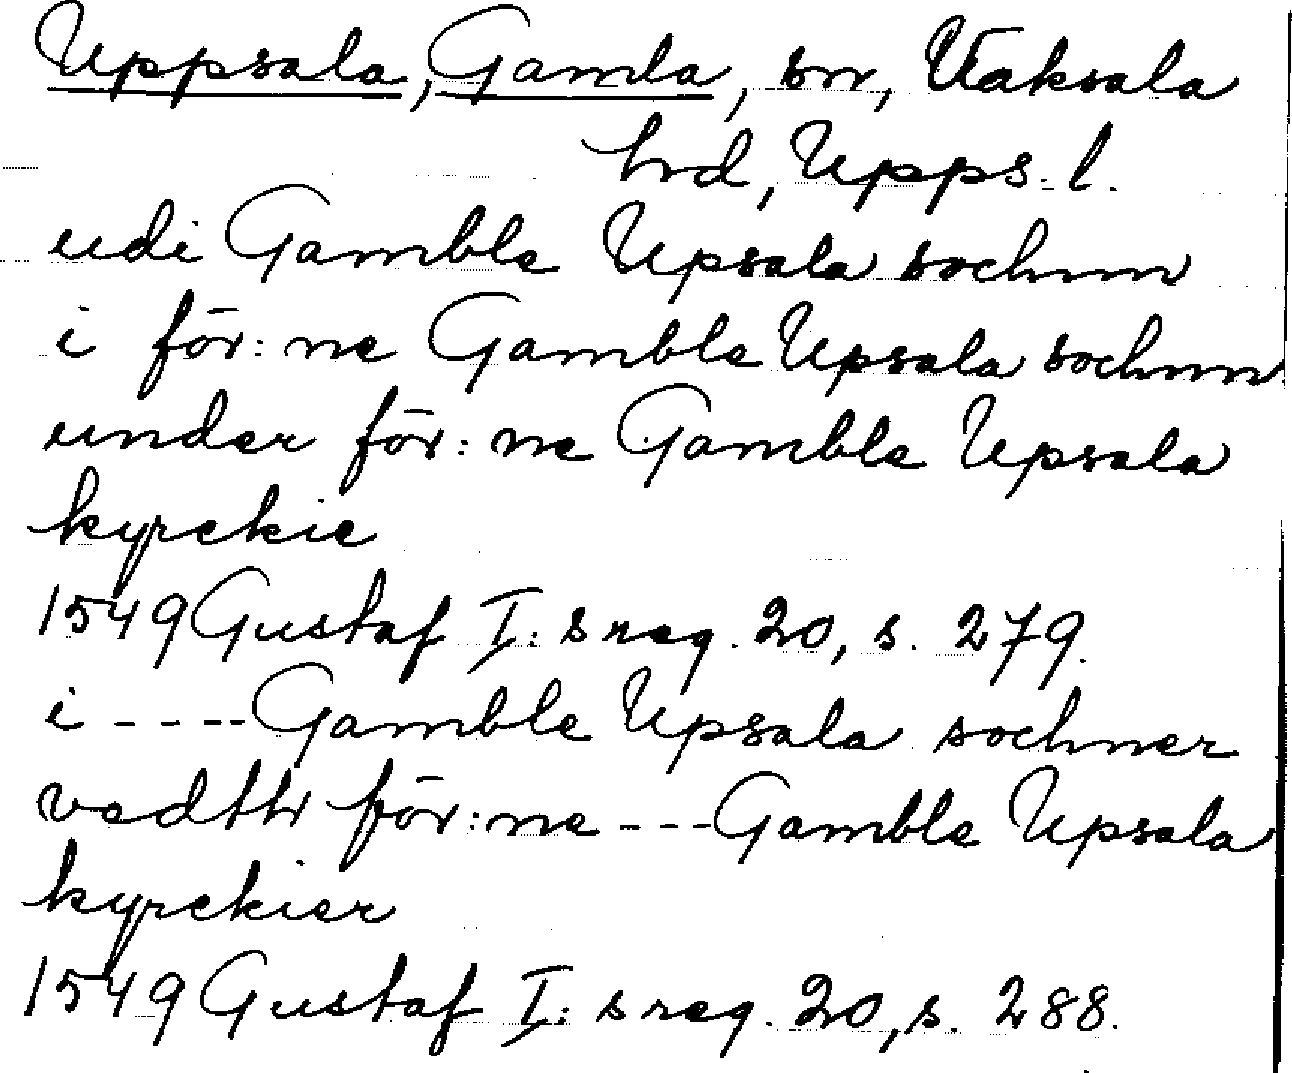 Uppsala, Gamla, sn, Vaksala
hrd, Upps. l.
udi Gamble Upsala sochnn
i för:ne Gamble Upsala sochnn
under för:ne Gamble Upsala
kyrckie
1549 Gustaf I:s reg. 20, s. 279.
i ---- Gamble Upsala sochner
vedthr för:ne --- Gamble Upsala
kyrckier
1549 Gustaf I:s reg. 20, s. 288.